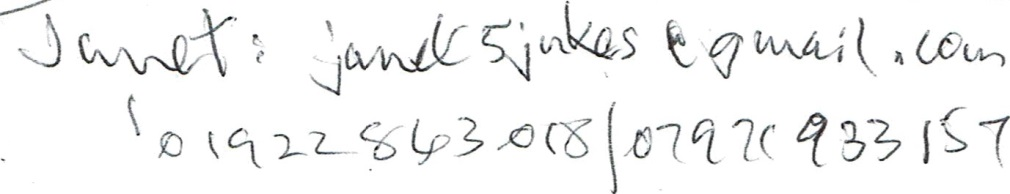 Janet: janet5jukes@gmail.com
01922 843 018/07971 933157